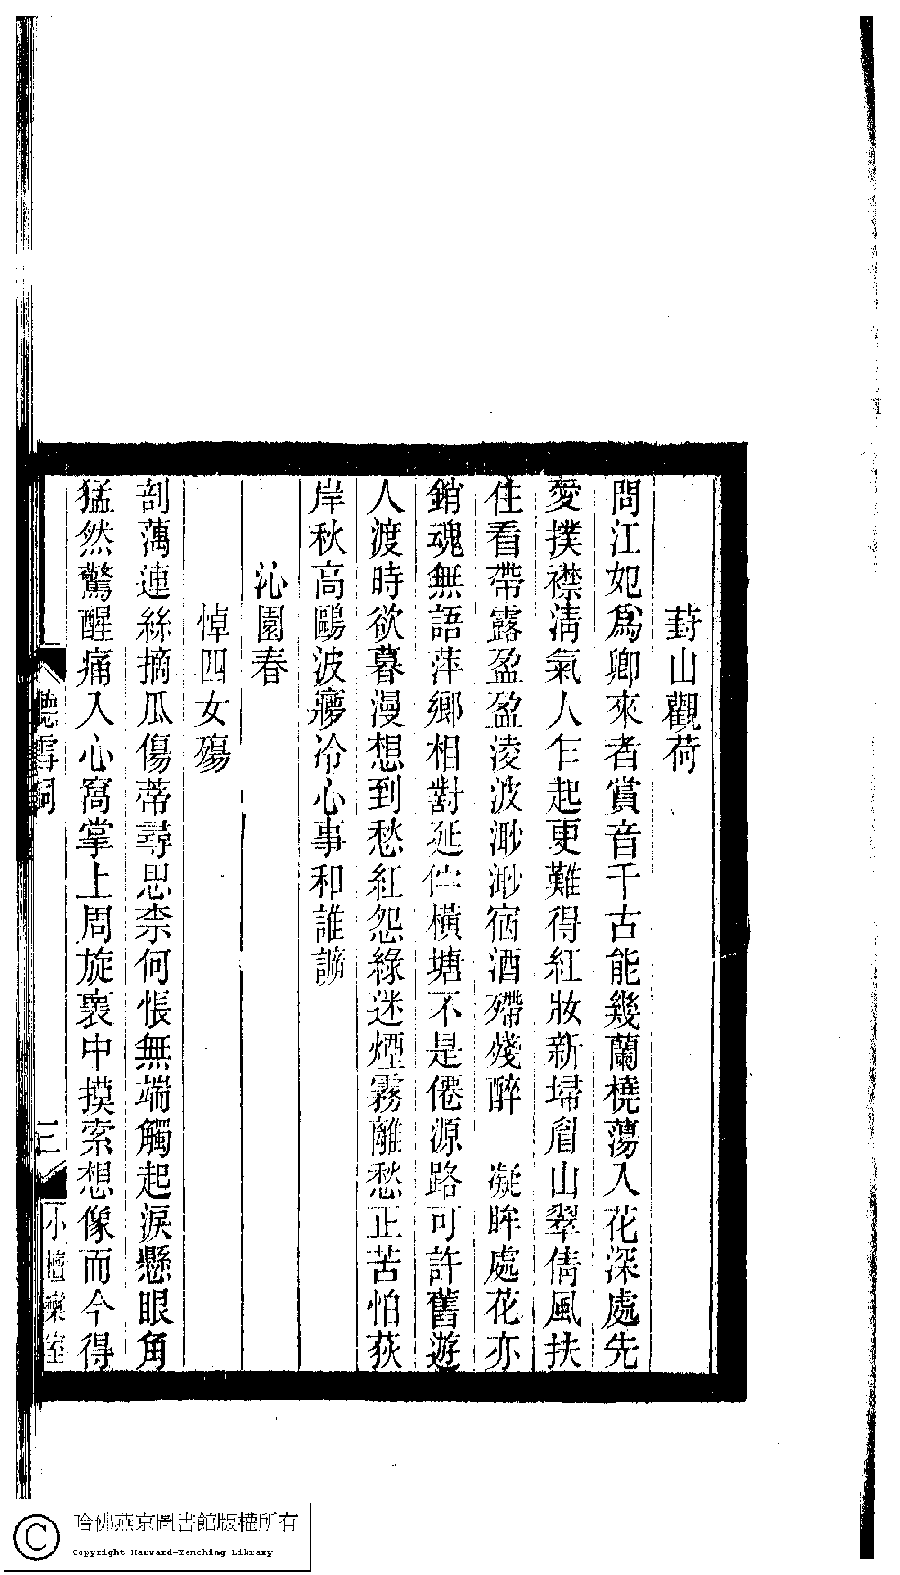 葑山觀荷
問江妃爲卿來者賞音千古能幾蘭橈蕩入花深處先
愛撲襟淸氣人乍起更難得紅妝新埽眉山翠倩風扶
住看帶露盈盈淩波渺渺宿酒殢殘醉　凝眸處花亦
銷魂無語萍鄉相對延伫橫塘不是僊源路可許舊遊
人渡時欲暮漫想到愁紅怨綠迷煙霧離愁正苦怕荻
岸秋高鷗波夢冷心事和誰謗
沁園春
悼四女殤
剖藕連絲摘瓜傷蒂尋思柰何悵無端觸起淚懸眼角
猛然驚醒痛入心窩掌上周旋裏中摸索想像而今得
聽雪詞
三
小檀欒室
哈佛燕京圖書館版權所有
Copyright Harvard-Yenching Library